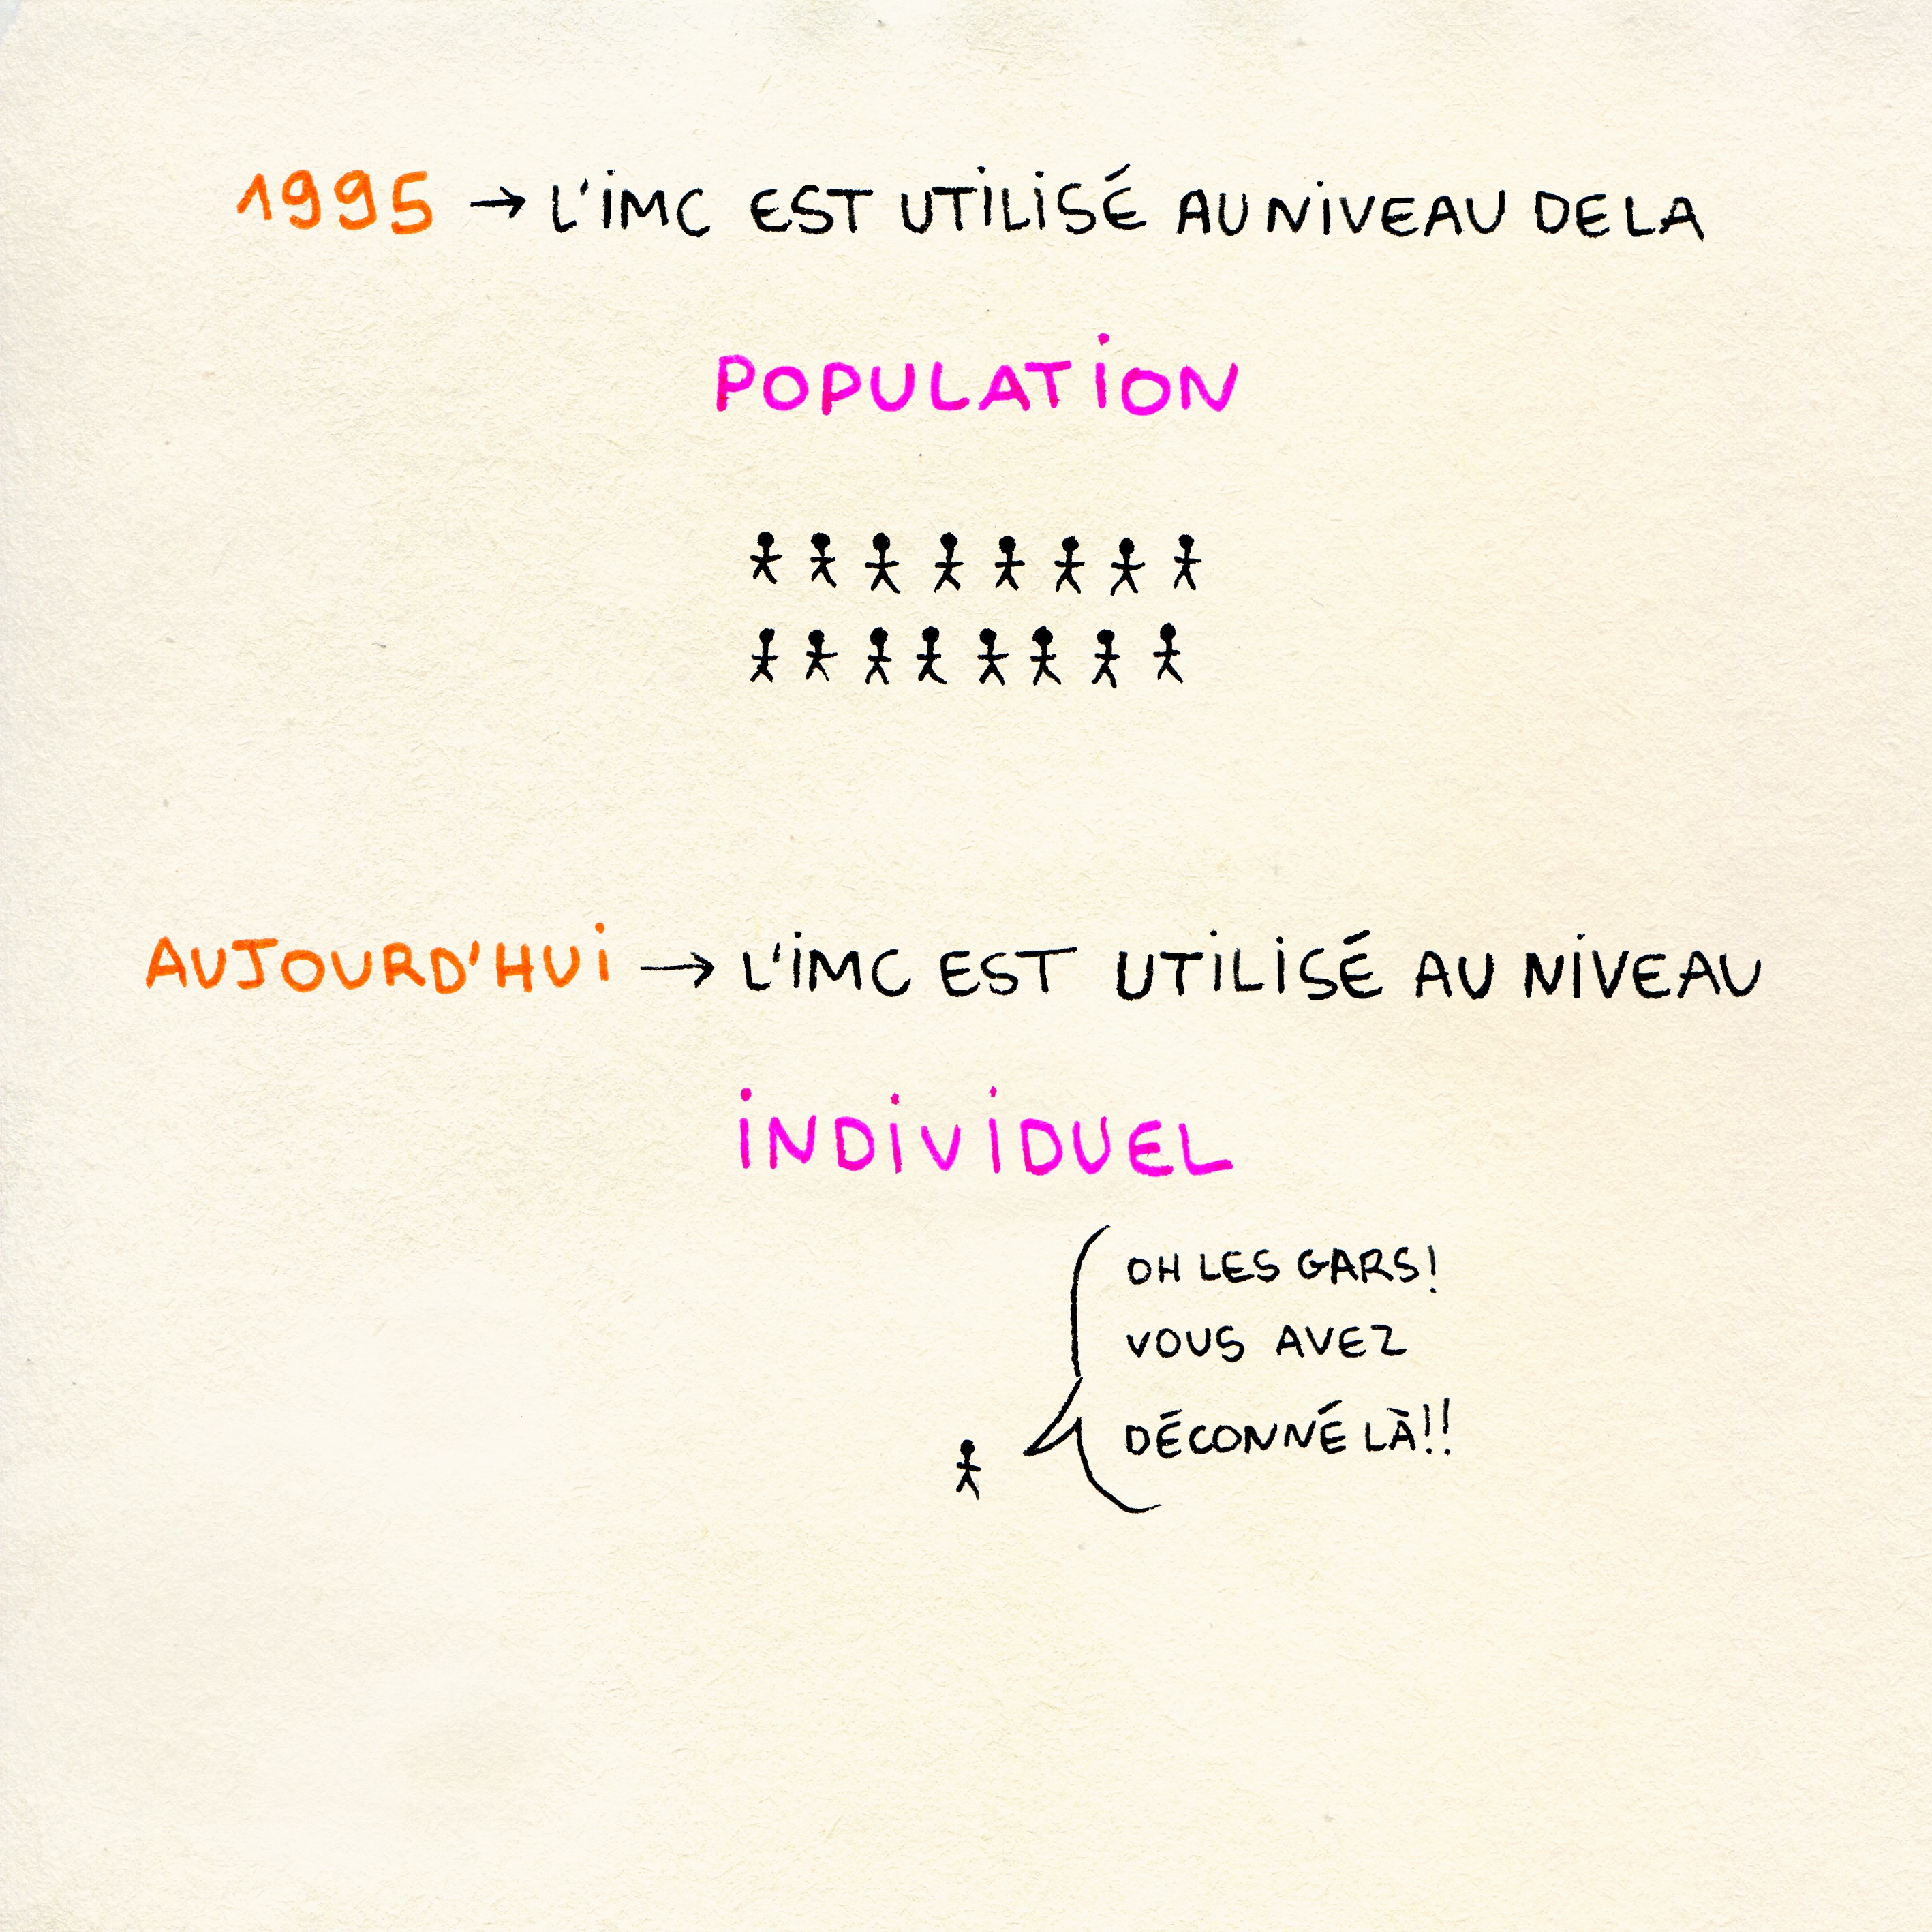 1995 → L'IMC EST UTILISÉ AU NIVEAU DE LA
POPULATION
AUJOURD'HUI → L'IMC EST UTILISÉ AU NIVEAU
INDIVIDUEL
OH LES GARS!
VOUS AVEZ
DÉCONNÉ LÀ!!